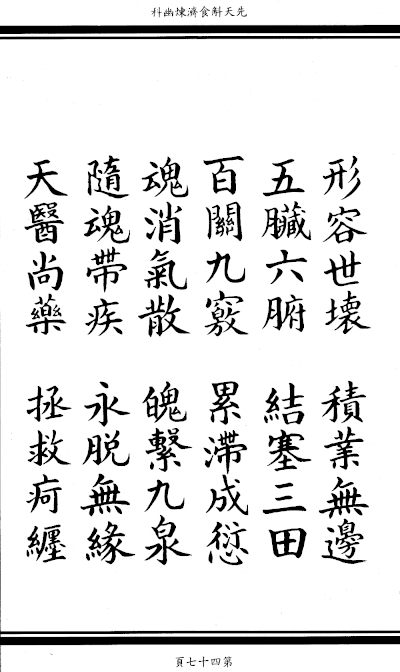 先天斛食濟煉幽科
形容世壞　積業無邊
五臟六腑　結塞三田
百關九竅　累滯成愆
魂消氣散　魄繫九泉
隨魂帶疾　永脱無緣
天醫尚藥　拯救疴纏
第四十七頁